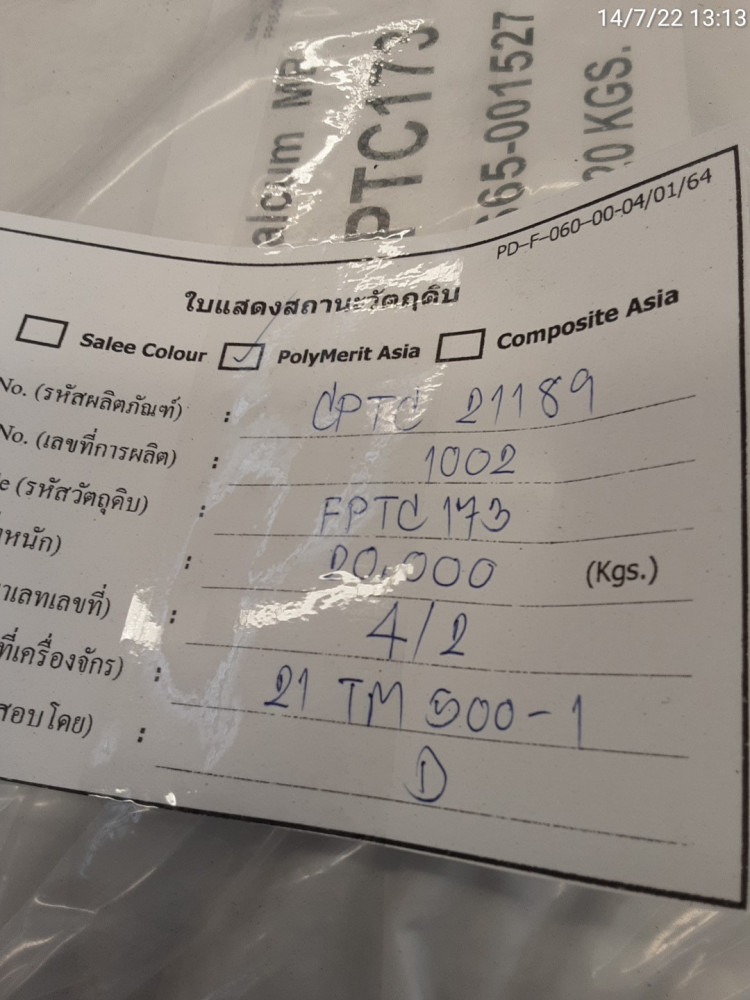 14/7/22 13:13
alcum MP
PTC173
665-001527
20 KGS.
PD-F-060-00-04/01/64
ใบแสดงสถานะวัตถุดิบ
Salee Colour PolyMerit Asia Composite Asia
No. (รหัสผลิตภัณฑ์) : CPTC 21189
No. (เลขที่การผลิต) : 1002
(รหัสวัตถุดิบ) : FPTC 173
: 20.000 (Kgs.)
: 4/2
ที่เครื่องจักร) : 21 TM 500-1
สอบโดย) :